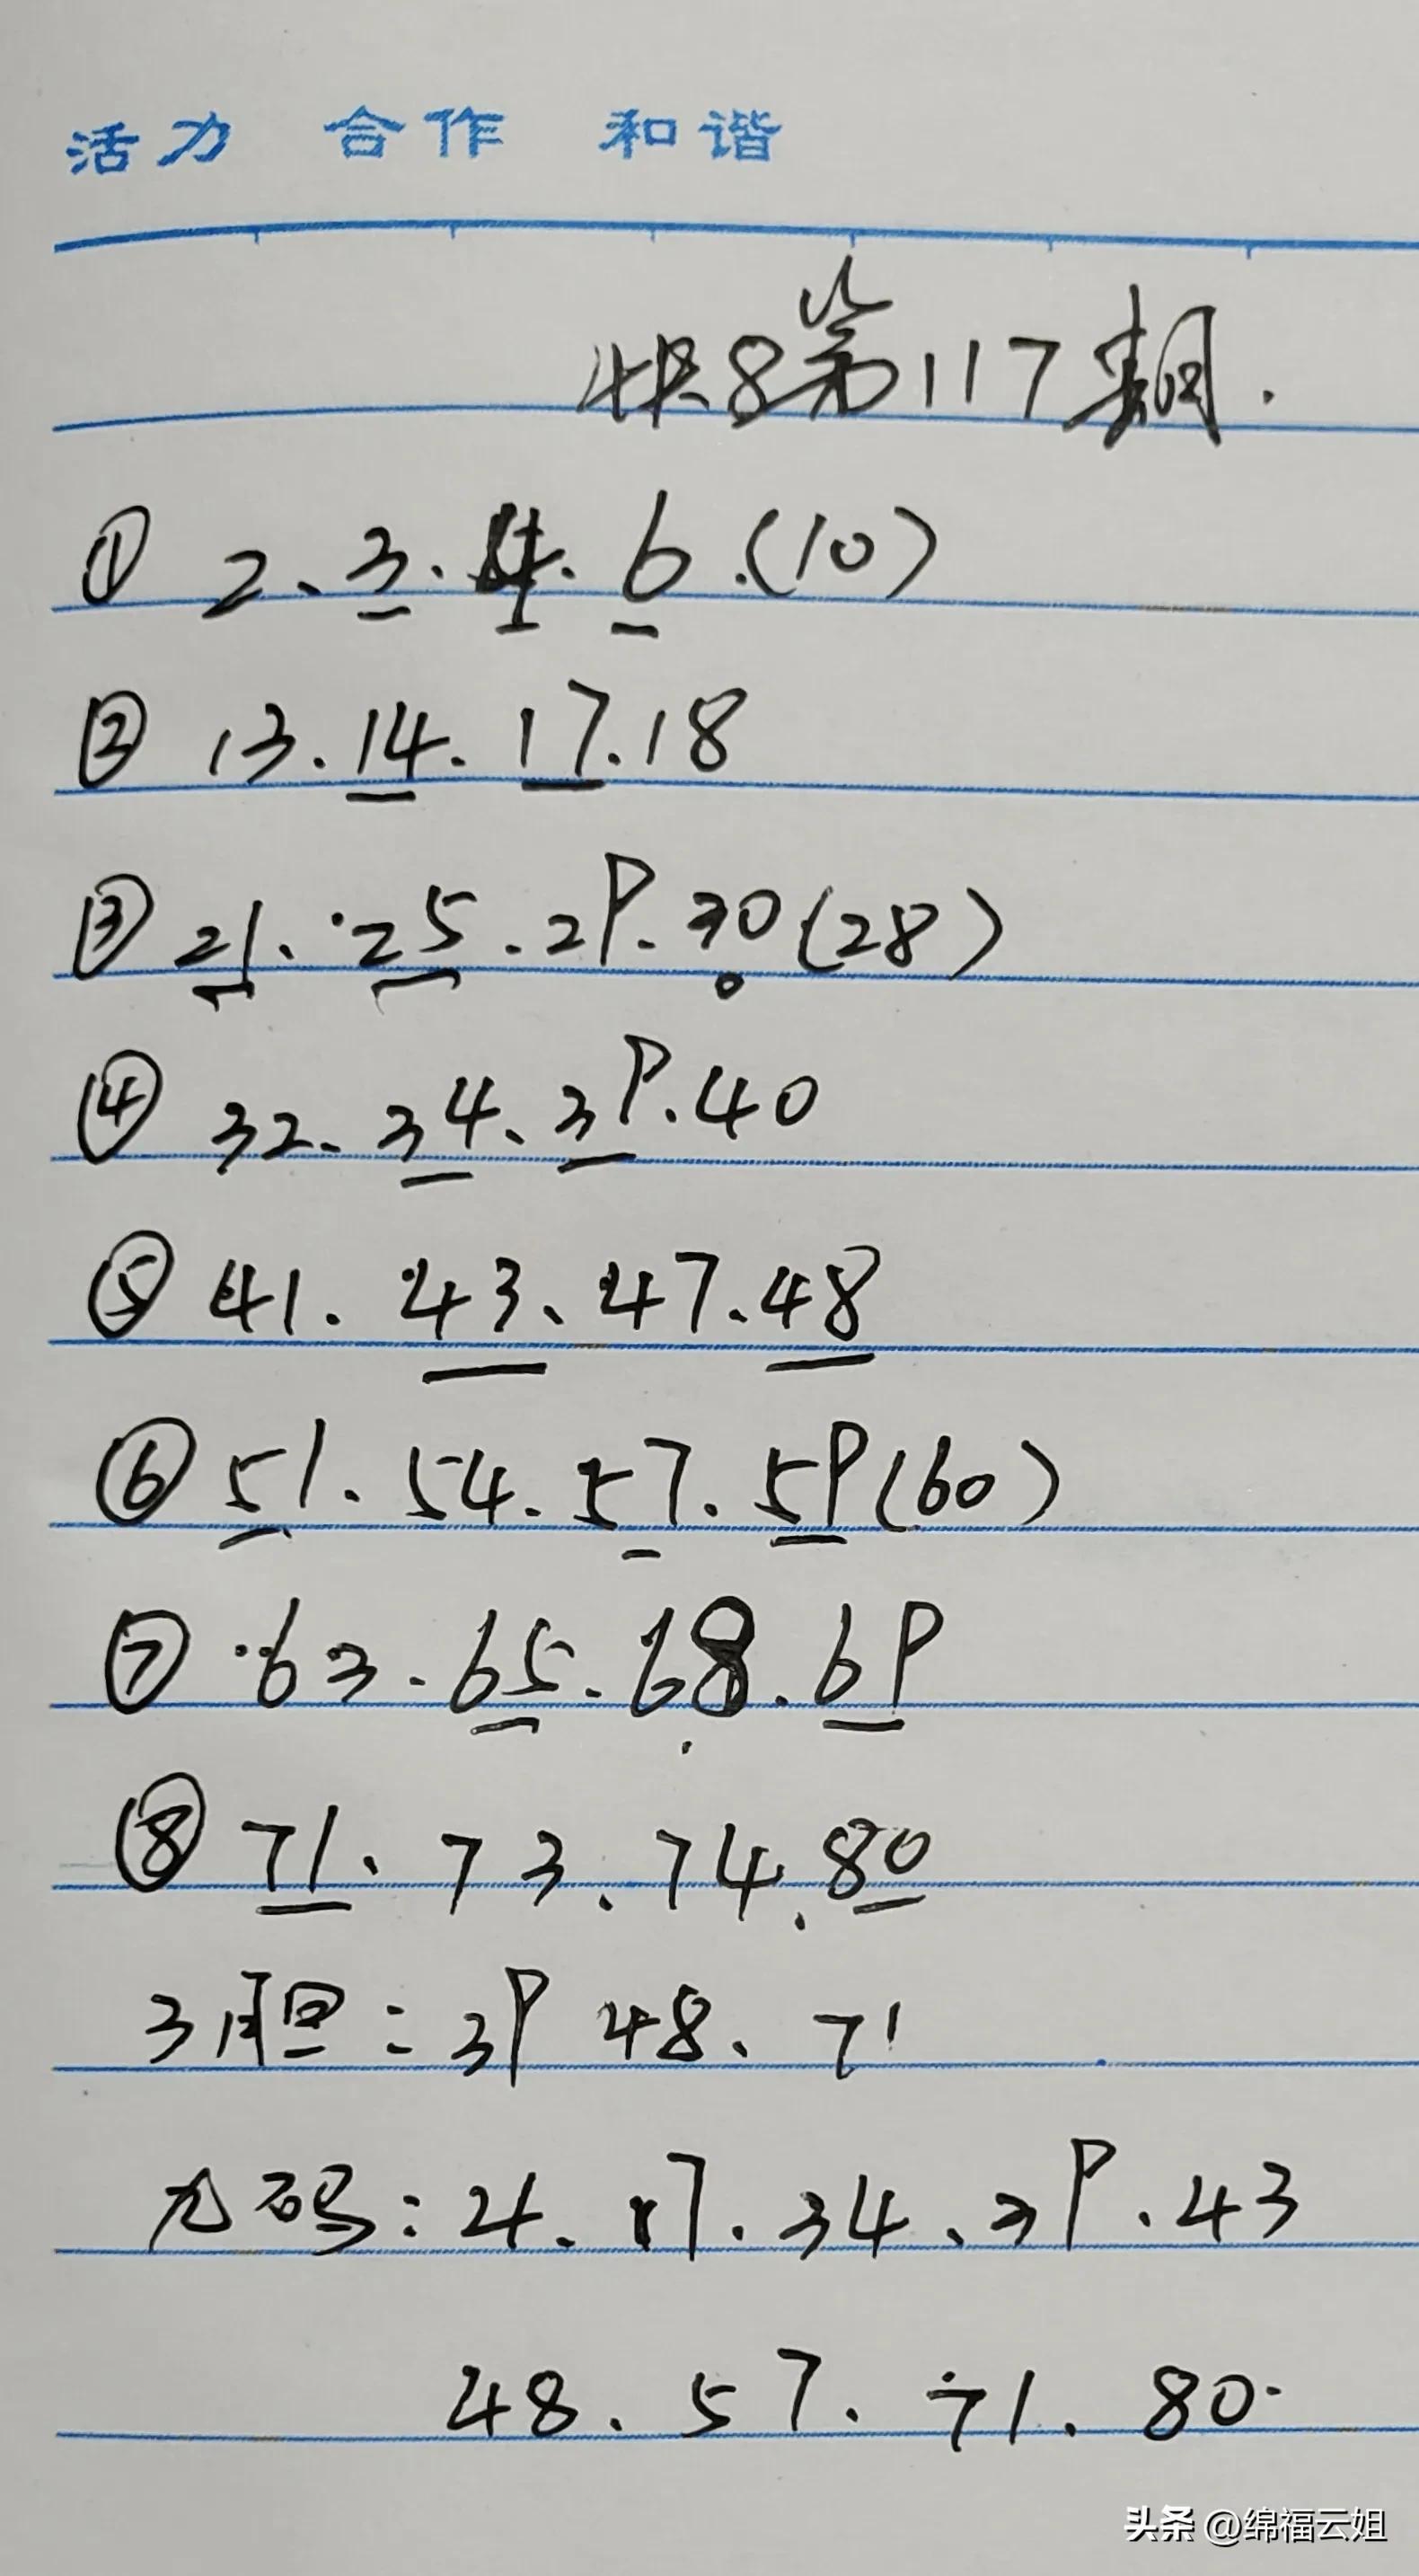 活力 合作 和谐
快8第117期.
① 2、3.4.6.(10)
② 13.14.17.18
③ 21、25.29.30(28)
④ 32、34、39.40
⑤ 41.43、47.48
⑥ 51.54.57.59(60)
⑦ 63.65.68.69
⑧ 71、73.74.80
3胆:39 48、71
九码:4.17.34、39.43
48.57.71.80.
头条 @绵福云姐